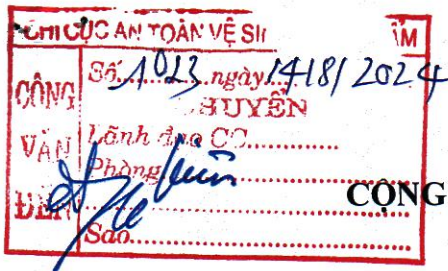 CHI CỤC AN TOÀN VỆ SI ẨM
CÔNG VĂN ĐẾN
Số. 1023 ngày 14/8/2024
CHUYỂN
Lãnh đạo CC
Phòng
Sao
CỘNG